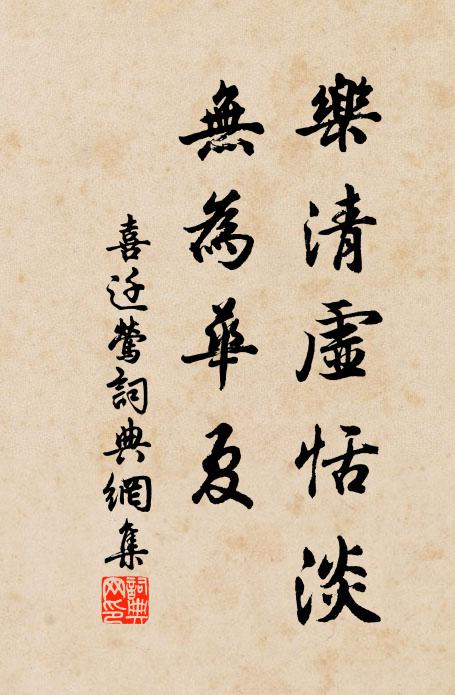 樂清虛恬淡
無為華夏
喜迁鶯詞典網集
詞典網印